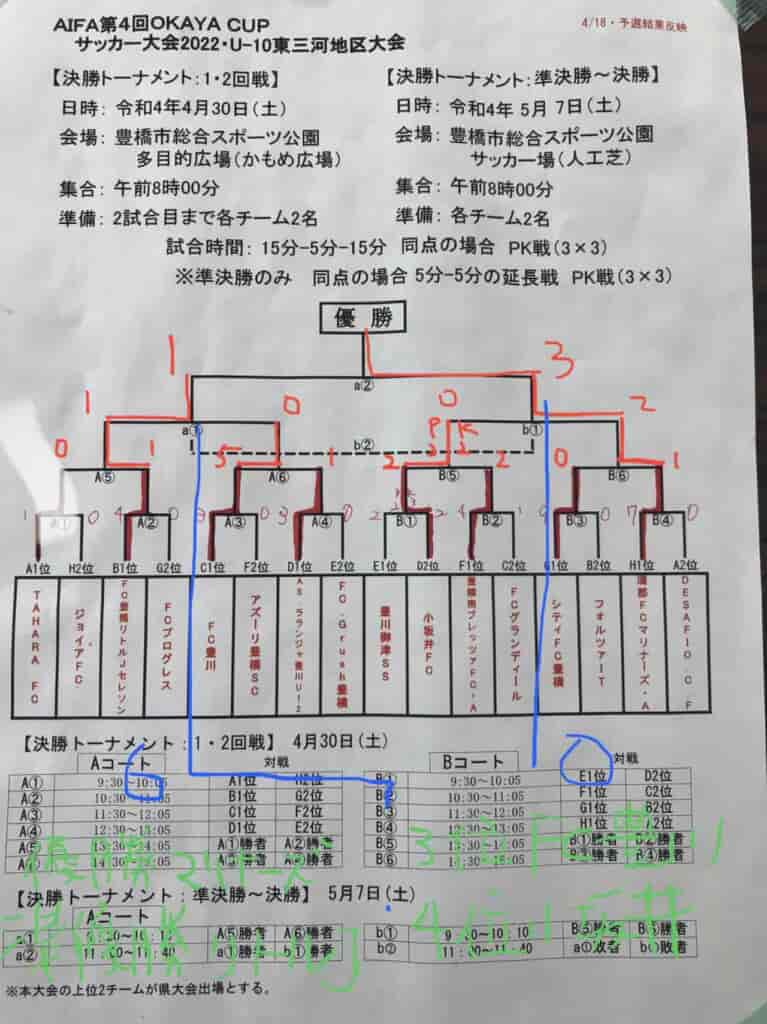 AIFA第4回OKAYA CUP
4/18・予選結果反映
サッカー大会2022・U-10東三河地区大会
【決勝トーナメント:1・2回戦】
日時: 令和4年4月30日(土)
会場: 豊橋市総合スポーツ公園
多目的広場(かもめ広場)
集合: 午前8時00分
準備: 2試合目まで各チーム2名
【決勝トーナメント:準決勝～決勝】
日時: 令和4年 5月 7日(土)
会場: 豊橋市総合スポーツ公園
サッカー場(人工芝)
集合: 午前8時00分
準備: 各チーム2名
試合時間: 15分-5分-15分 同点の場合 PK戦(3×3)
※準決勝のみ 同点の場合 5分-5分の延長戦 PK戦(3×3)
優 勝
1 3
a②
1 0 0 2
PK
a① b② b①
0 1 5 1 2 2 0 1
A⑤ A⑥ B⑤ B⑥
A① A② A③ A④ B① B② B③ B④
A1位 H2位 B1位 G2位 C1位 F2位 D1位 E2位 E1位 D2位 F1位 C2位 G1位 B2位 H1位 A2位
TAHARA FC
ジョイアFC
FC豊橋リトルJセレソン
FCプログレス
FC豊川
アズーリ豊橋SC
AS.ラランジャ豊川U12
FC.Grush豊橋
豊川御津SS
小坂井FC
豊橋南プレッツァFC・A
FCグランディール
シティFC豊橋
フォルツァーT
蒲郡FCマリナーズ・A
DESAFIO.C.F
【決勝トーナメント:1・2回戦】 4月30日(土)
Aコート 対戦 Bコート 対戦
A① 9:30～10:05 A1位 H2位 B① 9:30～10:05 E1位 D2位
A② 10:30～11:05 B1位 G2位 B② 10:30～11:05 F1位 C2位
A③ 11:30～12:05 C1位 F2位 B③ 11:30～12:05 G1位 B2位
A④ 12:30～13:05 D1位 E2位 B④ 12:30～13:05 H1位 A2位
A⑤ 13:30～14:05 A①勝者 A②勝者 B⑤ 13:30～14:05 B①勝者 B②勝者
A⑥ 14:30～15:05 A③勝者 A④勝者 B⑥ 14:30～15:05 B③勝者 B④勝者
優勝マリナーズ
3位FC豊川
【決勝トーナメント:準決勝～決勝】 5月7日(土)
Aコート
a① 9:30～10:10 A⑤勝者 A⑥勝者 b① 9:30～10:10 B⑤勝者 B⑥勝者
a② 11:00～11:40 a①勝者 b①勝者 b② 11:00～11:40 a①敗者 b①敗者
準優勝リトルJ
4位小坂井
※本大会の上位2チームが県大会出場とする。